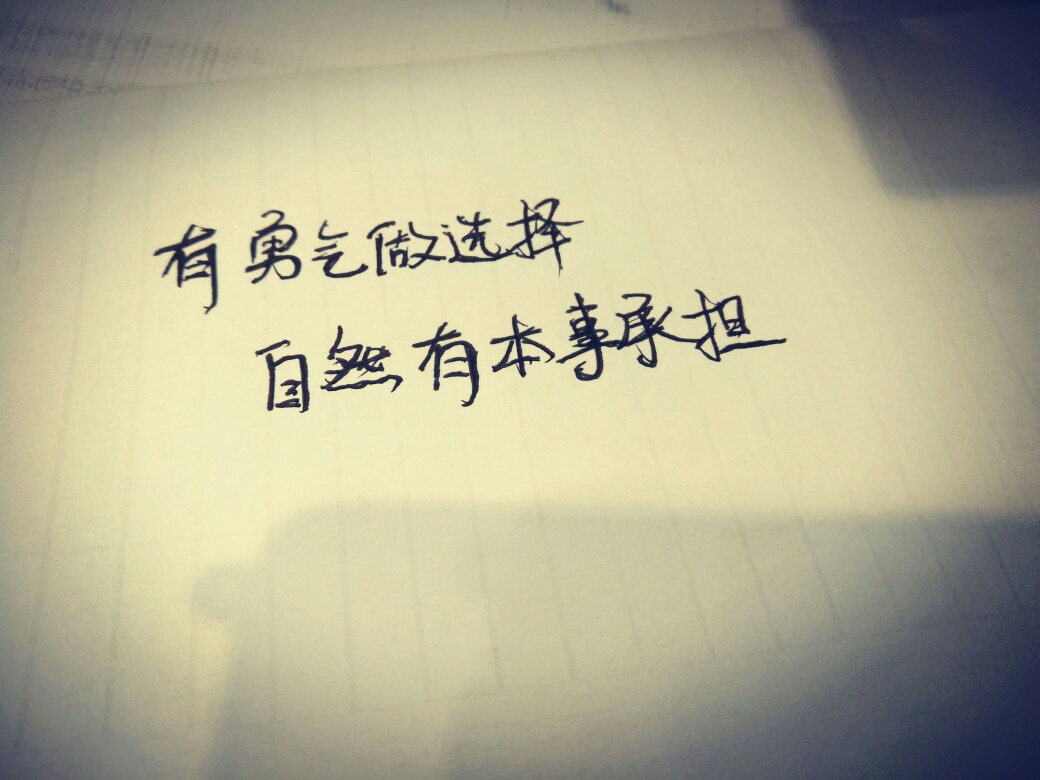 有勇气做选择
自然有本事承担